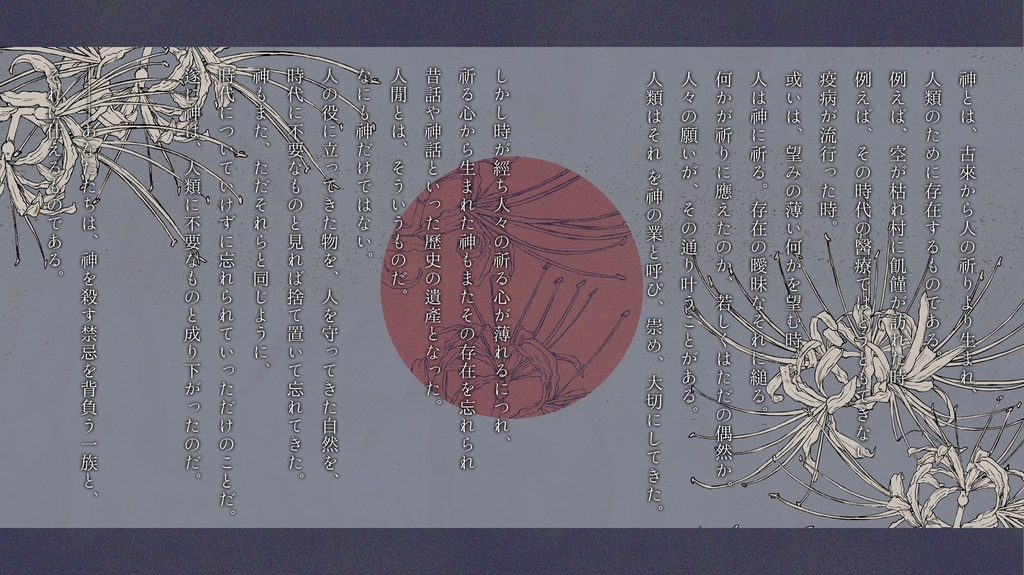 神とは、古來から人の祈りより生まれ、
人類のために存在するものである。
例えば、空が枯れ村に飢饉が訪れた時。
例えば、その時代の醫療ではどうもできな
疫病が流行った時。
或いは、望みの薄い何かを望む時
人は神に祈る。存在の曖昧なそれに縋る。
何かが祈りに應えたのか、若しくはただの偶然か。
人々の願いが、その通り叶うことがある。
人類はそれを神の業と呼び、崇め、大切にしてきた。
しかし時が經ち人々の祈る心が薄れるにつれ、
祈る心から生まれた神もまたその存在を忘れられ
昔話や神話といった歷史の遺產となった。
人間とは、そういうものだ。
なにも神だけではない。
人の役に立ってきた物を、人を守ってきた自然を、
時代に不要なものと見れば捨て置いて忘れてきた。
神もまた、ただそれらと同じように、
時代についていけずに忘れられていっただけのことだ。
遂に神は、人類に不要なものと成り下がったのだ。
たちは、神を殺す禁忌を背負う一族と、
のである。